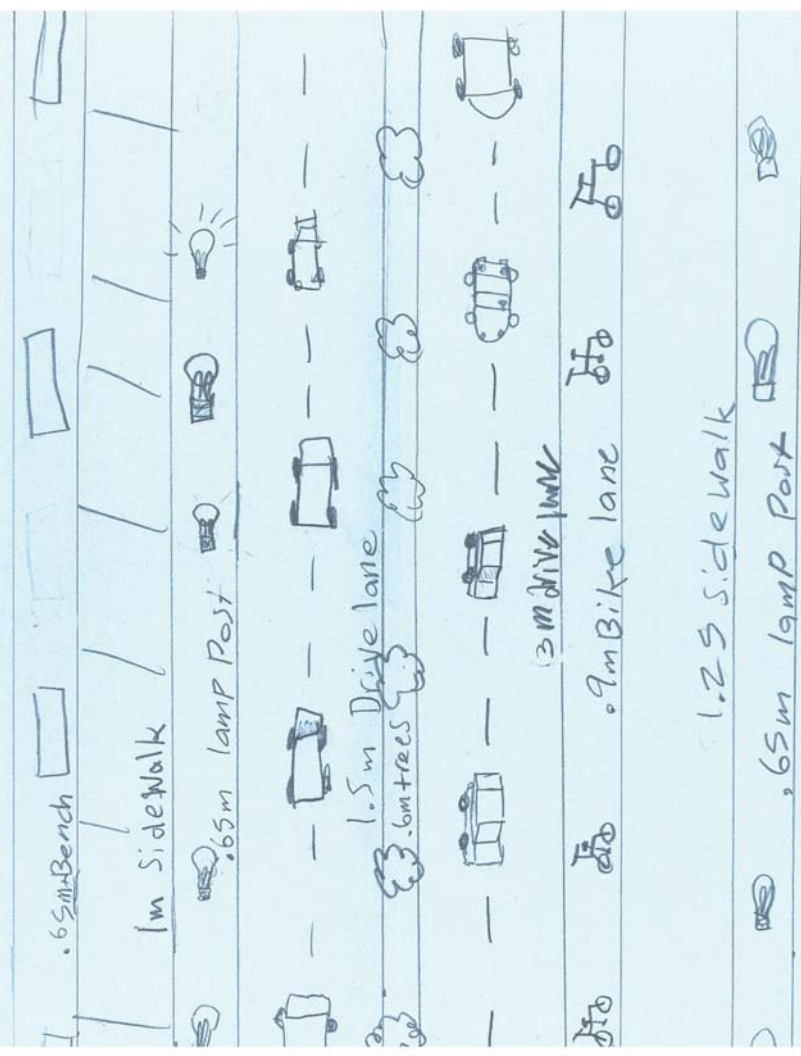 .65m Bench
1m Sidewalk
.65m lamp Post
1.5m Drive lane
.6m trees
3m drive lane
.9m Bike lane
1.25 sidewalk
.65m lamp Post